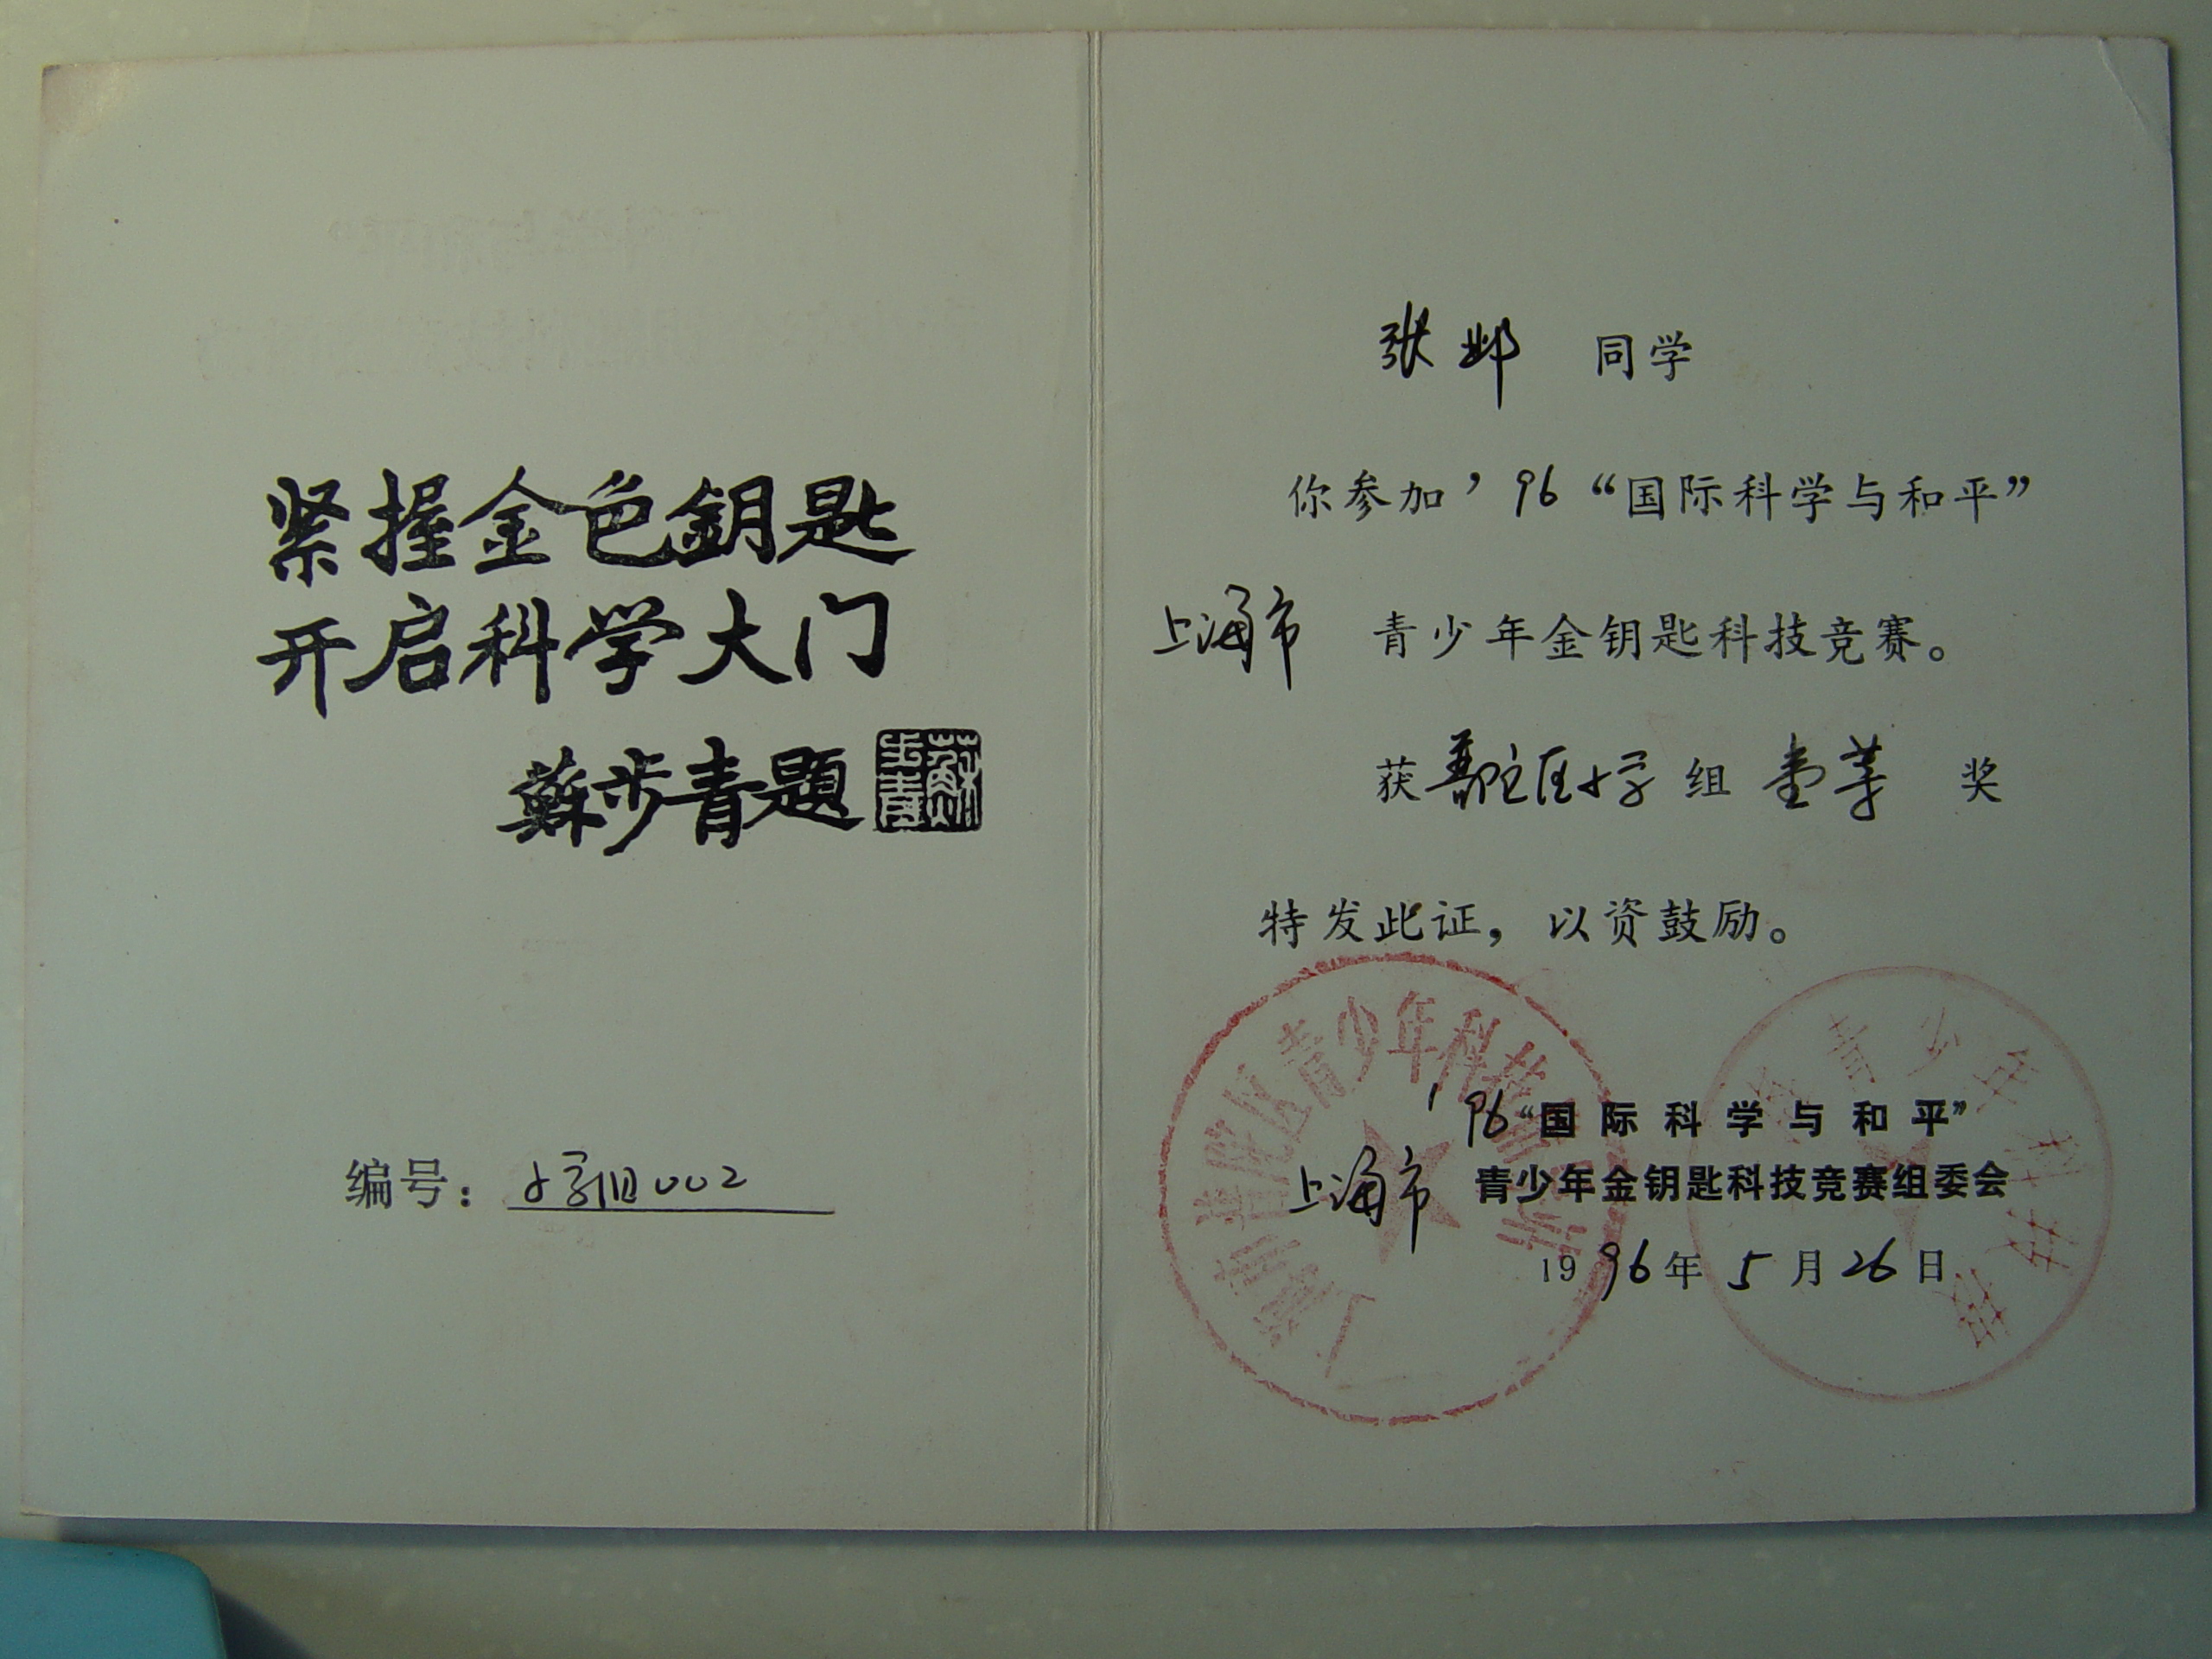 紧握金色鈅匙
开启科学大门
蘇步青题
蘇步青
编号：小学组002
张邺 同学
你参加’96“国际科学与和平”
上海市 青少年金钥匙科技竞赛。
获普陀区小学组壹等奖
特发此证，以资鼓励。
’96“国际科学与和平”
上海市 青少年金钥匙科技竞赛组委会
1996年5月26日
上海市普陀区青少年科技
青少年科技